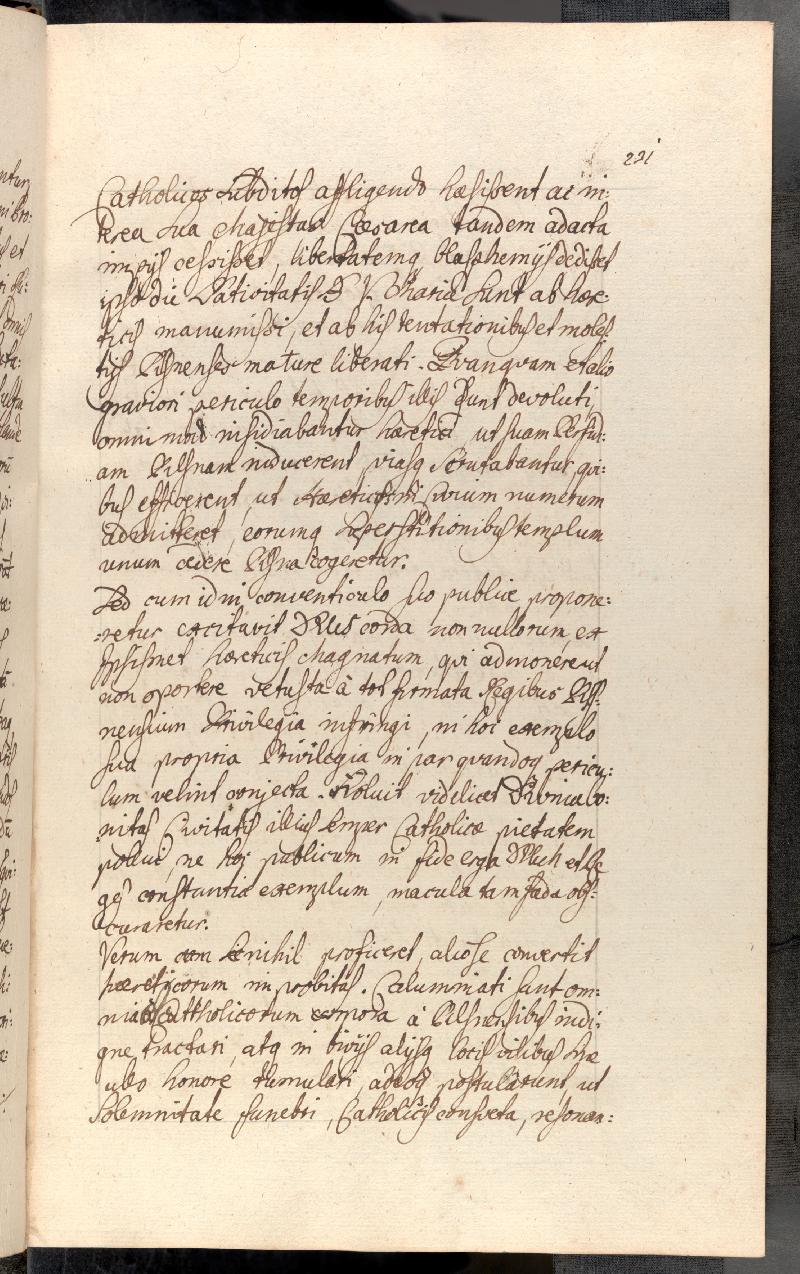 221
Catholicos subditos affligendo hæsissent ac in:
terea Sua Majestas Cæsarea tandem adacta
impijs cessisset, libertatemq blasphemijs dedisset
ipso die Nativitatis B V. Mariæ sunt ab hære:
ticis manumissi, et ab his tentationibus et moles
tijs Pilsnenses mature liberati. Quanquam et alio
graviori periculo temporibus illis sunt devoluti,
omni mod insidiabantur hæretici, ut suam Perfidi:
am Pilsnam inducerent, viasq scrutabantur, qui:
bus efficerent, ut Hæreticos in Civium numerum
admitteret, eorumq superstitionibus templum
unum cedere Pilsna cogeretur.
Sed cum id in conventiculo suo publice propone:
:retur excitavit DEUS corda nonnullorum, ex
ipsismet hæreticis Magnatum, qui admonerent
non oportere vetusta à tot firmata Regibus Pils:
nensium Privilegia infringi, ni hoc exemplo
sua propria Privilegia in par quandoq pericu:
lum velint conjecta. Noluit videlicet Divina bo:
:nitas Civitatis illius semper Catholicæ pietatem
pollui, ne hoc publicum in fide erga DEUM et Re
ges constantiæ exemplum, macula tam fæda obs:
curaretur.
Verum cum se nihil proficeret, alio se convertit
hæreticorum improbitas. Calumniati sunt om:
nia Catholicorum corpora à Pilsnensibus indi:
gne tractari, atq in bivijs alijsq locis vilibus sine
ullo honore tumulari, adeoq postularunt, ut
Solemnitate funebri, Catholicis consveta, resonan: